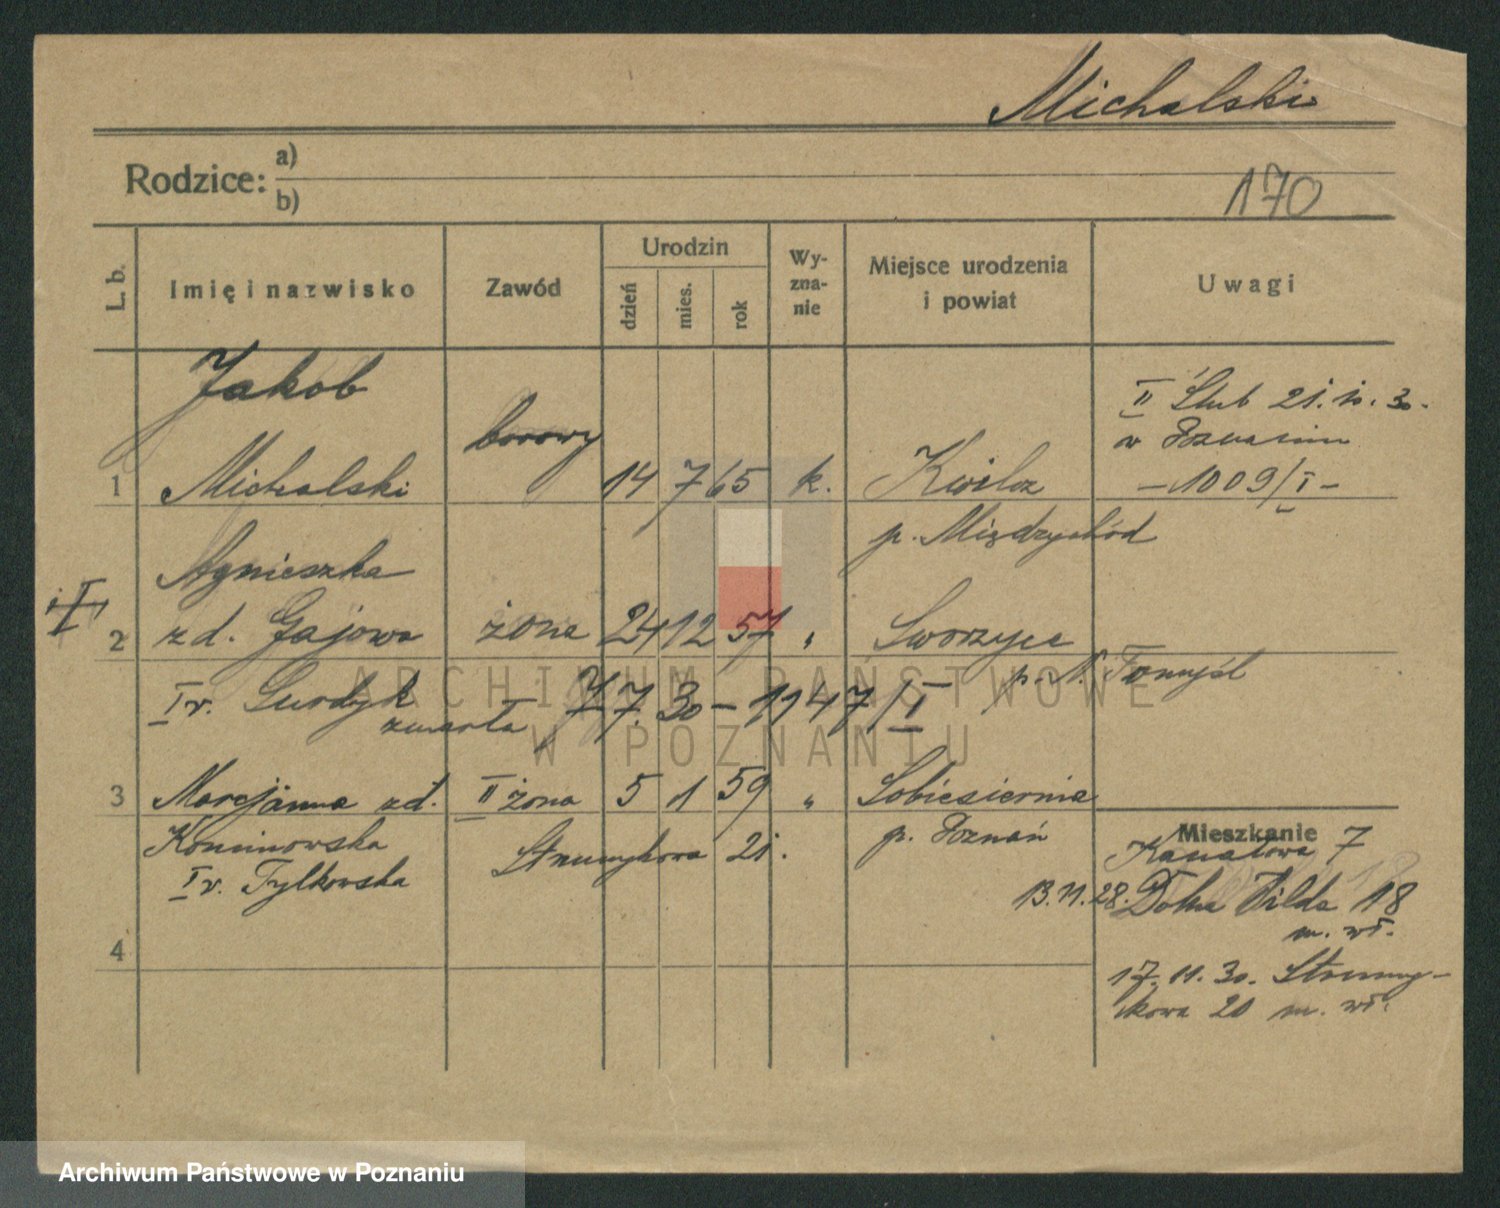 Michalski
Rodzice: a)
b)
170
L. b.
Imię i nazwisko
Zawód
Urodzin
dzień
mies.
rok
Wy-
zna-
nie
Miejsce urodzenia
i powiat
Uwagi
Jakob
1 Michalski borowy 14 7 65 k. Kwilcz
p. Międzychód
II Ślub 21. 10. 30.
w Poznaniu
- 1009/I -
Agnieszka
2 zd. Gajowa żona 24 12 57 "
p. N. Tomyśl
I v. Gurdyk
zmarła 7. 7. 30 - 1147/I
3 Marcjanna zd. II żona 5 1 59 " Sobiesiernia
Koninowska Strumykowa 21. p. Poznań
I v. Tylkowska
4
Mieszkanie
Kanałowa 7
13. 11. 28. Dolna Wilda 18
m. wł.
17. 11. 30. Strumy-
kowa 20 m. wł.
ARCHIWUM PAŃSTWOWE
W POZNANIU
Archiwum Państwowe w Poznaniu